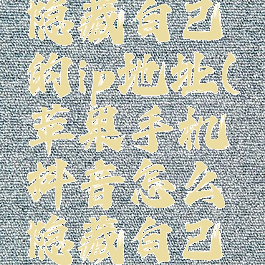 隐藏自己
的ip地址(
苹果手机
抖音怎么
隐藏自己